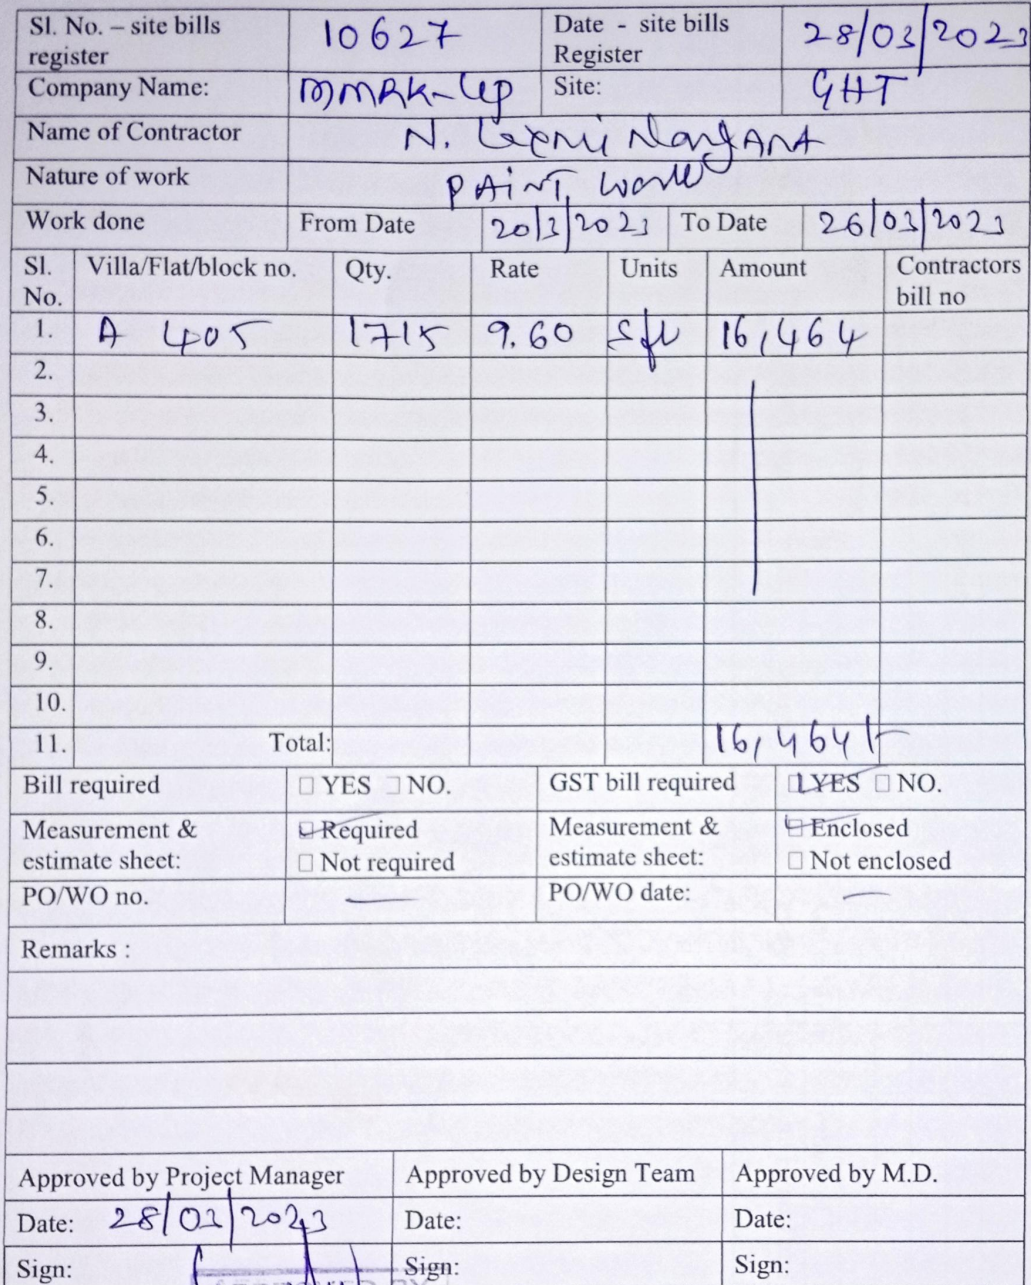 Sl. No. – site bills register 10627 Date - site bills Register 28/03/2023
Company Name: MMRK-LLP Site: GHT
Name of Contractor N. Laxmi Narayana
Nature of work PAiNT work
Work done From Date 20/3/2023 To Date 26/03/2023
Sl. No. Villa/Flat/block no. Qty. Rate Units Amount Contractors bill no
1. A 405 1715 9.60 Sft 16,464
2.
3.
4.
5.
6.
7.
8.
9.
10.
11. Total: 16,464/-
Bill required YES NO. GST bill required YES NO.
Measurement & estimate sheet: Required Measurement & estimate sheet: Enclosed
Not required Not enclosed
PO/WO no. PO/WO date:
Remarks :
Approved by Project Manager Approved by Design Team Approved by M.D.
Date: 28/03/2023 Date: Date:
Sign: Sign: Sign:
APPROVED BY